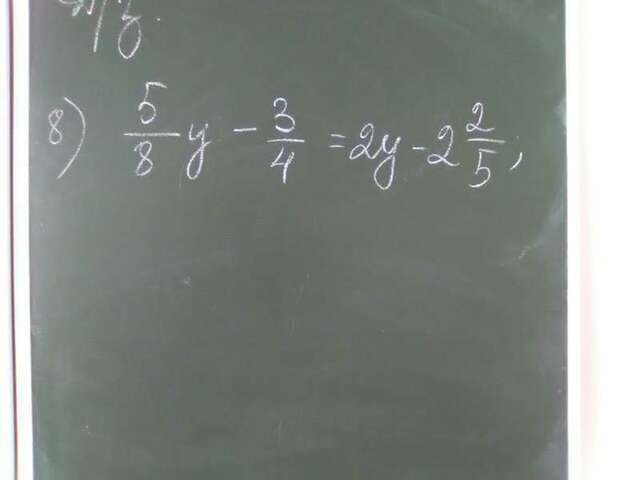 д/з.
8) 5/8 y - 3/4 = 2y - 2 2/5,